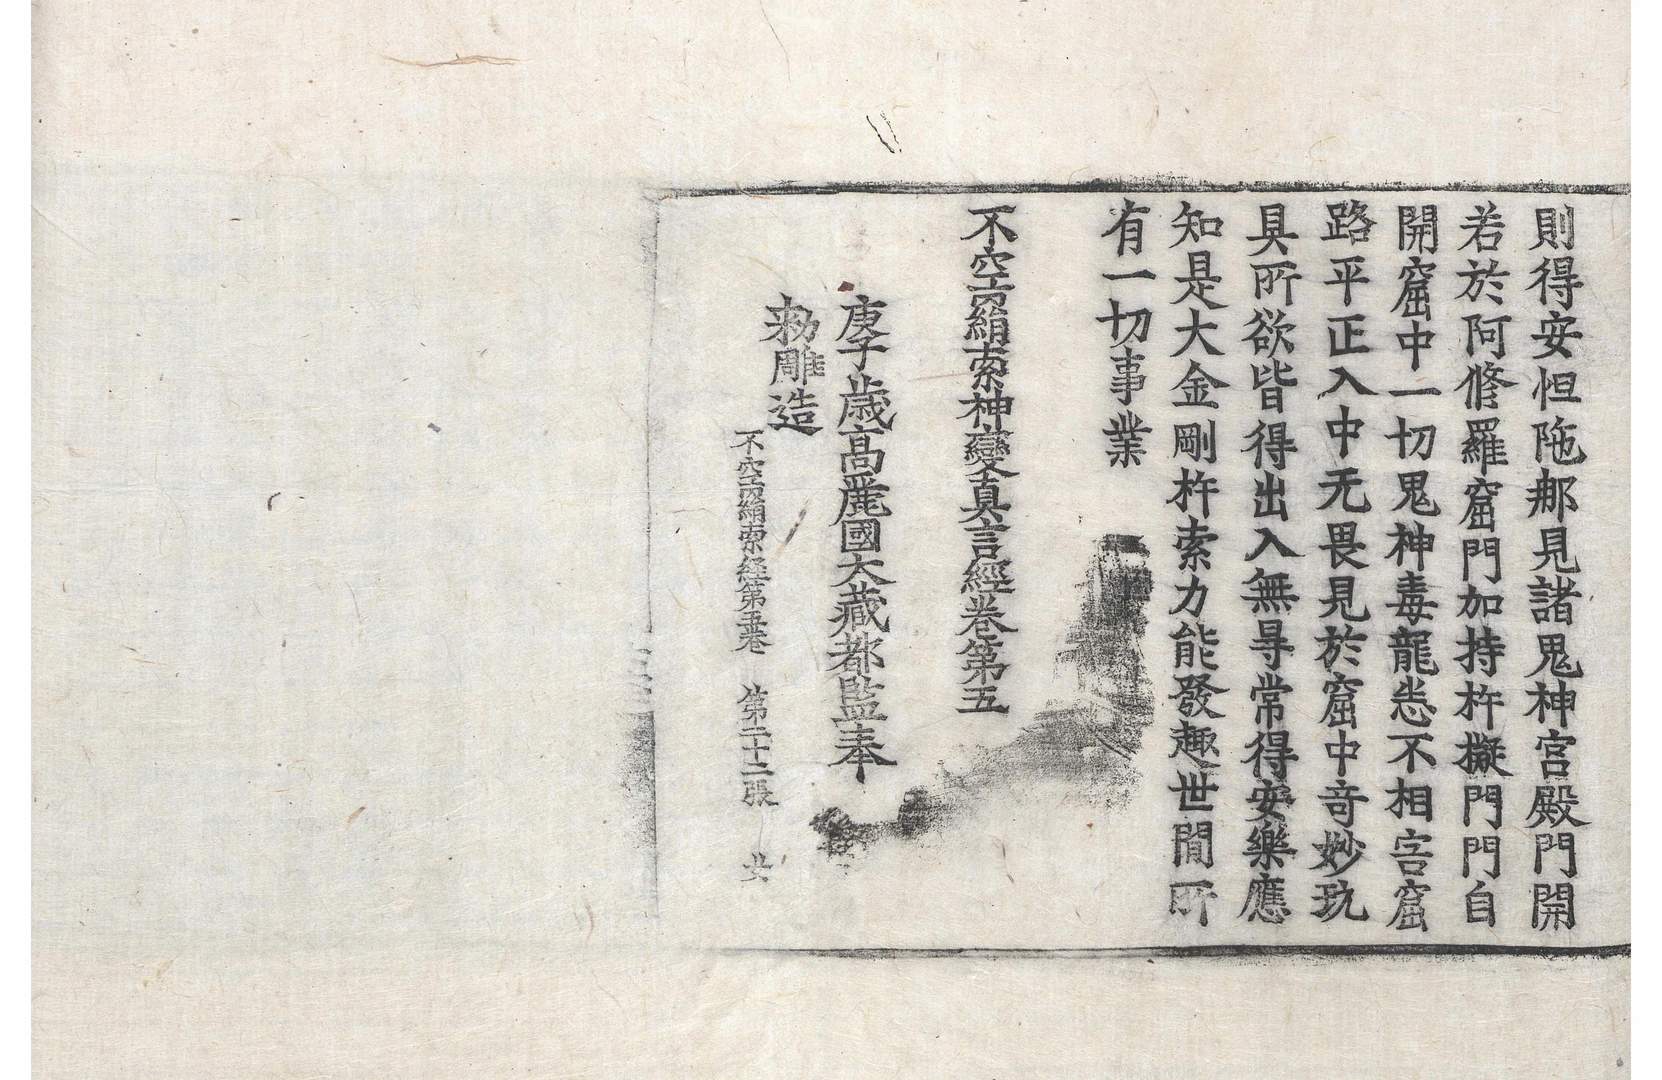 則得安怛陁那見諸鬼神宮殿門開
若於阿修羅窟門加持杵擬門門自
開窟中一切鬼神毒龍悉不相害窟
路平正入中无畏見於窟中竒妙玩
具所欲皆得出入無㝵常得安樂應
知是大金剛杵索力能發趣世間所
有一切事業
不空羂索神變真言經卷第五
庚子歳高麗國大藏都監奉
勑雕造
不空羂索経第五卷 第二十二張